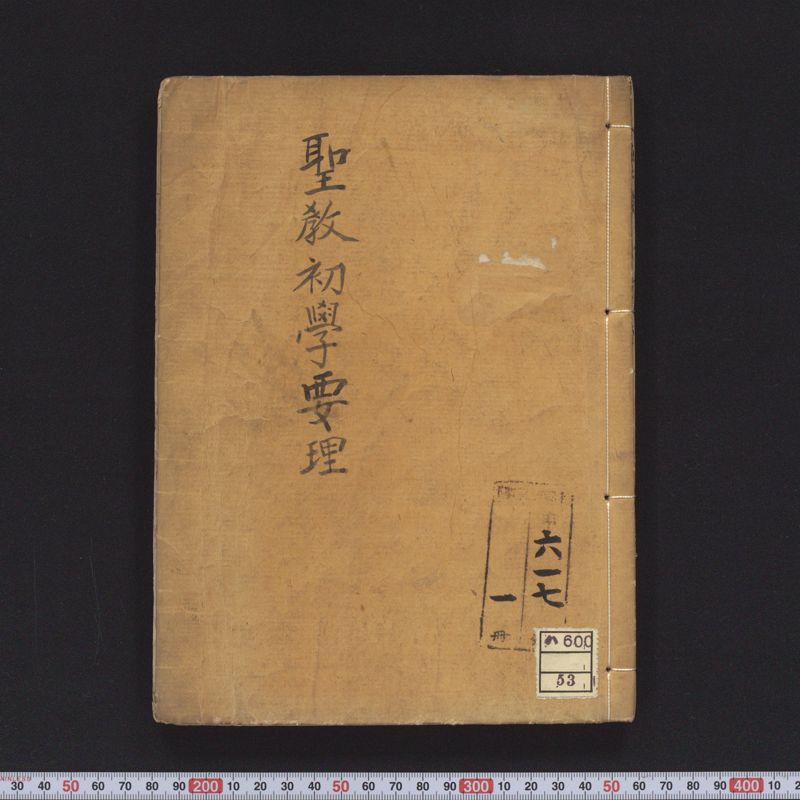 聖教初學要理
六一七
一
冊
ハ 600
53
30 40 50 60 70 80 90 200 10 20 30 40 50 60 70 80 90 300 10 20 30 40 50 60 70 80 90 400 10 2